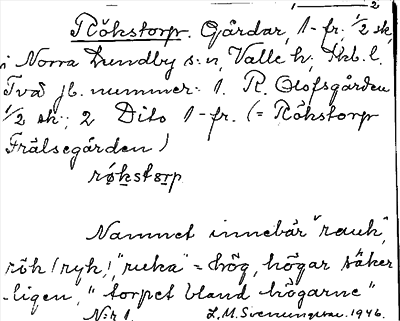 Rökstorp. Gårdar, 1-fr. 1/2 sk,
i Norra Lundby s:n, Valle h. Skb. l.
Två jb. nummer: 1. R. Olofsgården
1/2 sk.; 2 Dito 1-fr. (= Rökstorp
Frälsegården)
røkstorp
Namnet innebär "rauk",
rök (ryk,) "ruka" = hög, högar säker
ligen, "torpet bland högarne"
N:r 1. L. M. Svenungsson. 1946.